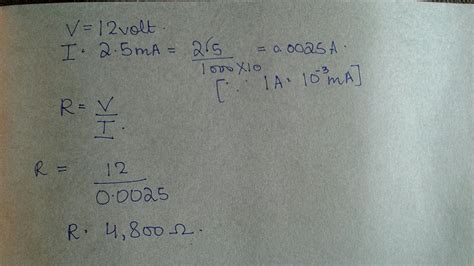 V = 12 volt.
I = 2.5 mA = 25/1000×10 = 0.0025 A.
[∵ 1A = 10⁻³ mA]
R = V/I.
R = 12/0.0025
R = 4,800 Ω.